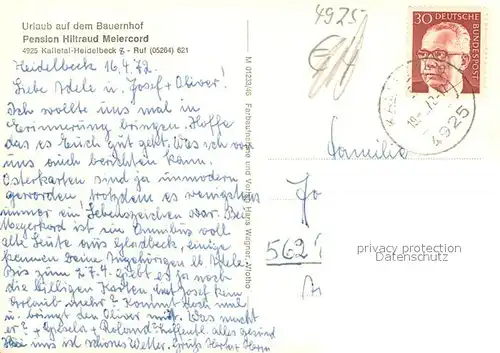 Urlaub auf dem Bauernhof
Pension Hiltraud Meiercord
4925 Kalletal-Heidelbeck 7 - Ruf (05264) 621
Heidelbeck 16.4.72.
Liebe Adele u. Josef + Oliver!
Ich wollte uns mal in
Erinnerung bringen. Hoffe
das es Euch gut geht. Was ich von
uns auch berichten kann.
Osterkarten sind ja unmodern
geworden, trotzdem es wenigstens
immer ein Lebenszeichen war. Bei
Meyerkord ist ein Omnibus voll
alte Leute aus Gladbeck, einige
kennen Deine Angehörigen lb. Adele.
Bis zum 27.4. gibt es ja noch
die billigen Karten hat Josef kein
Urlaub mehr? Kommt doch mal
u. bringt den Oliver mit. Was macht
er? + Gisela + Roland? Hoffentl. alles gesund
Bei uns ist schönes Wetter. Grüße
M 01233/46 Farbaufnahme und Verlag Hans Wagner, Vlotho
4925
30 DEUTSCHE
BUNDESPOST
4925
Familie
Jo
562
A
privacy protection
Datenschutz